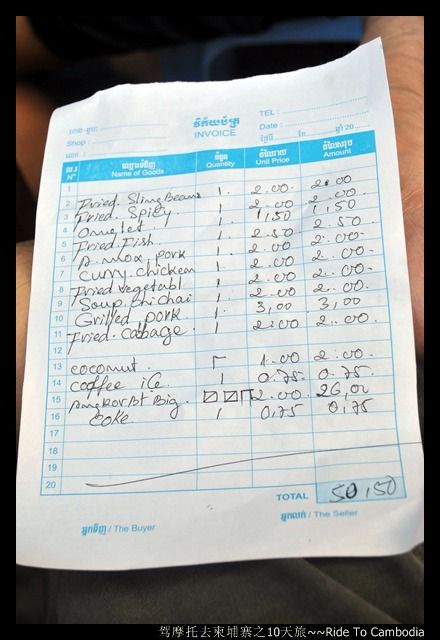 វិក្កយប័ត្រ
INVOICE
TEL :
Shop :
Date : ថ្ងៃទី ខែ ឆ្នាំ 20
ល.រ ឈ្មោះទំនិញ ចំនួន តំលៃរាយ តំលៃសរុប
Nº Name of Goods Quantity Unit Price Amount
1
2 Fried. Sling Beans 1. 2.00. 2.00
3 Fried. Spicy 1. 2.00 2.00
4 Omglet 1. 1,50 1,50
5 Fried. Fish 1. 2.50 2.50
6 A. mox, pork 1. 2.00 2.00
7 Curry. chicken 1. 2.00 2.00
8 Fried vegetabl 1. 2.00 2.00
9 Soup. Chi chai 1. 2.00 2.00
10 Grilled pork 1. 3,00 3,00
11 Fried. Cabbage 1 2.00 2.00
12
13 coconut. 1.00 2.00
14 coffee iCe 1 0.75 0.75
15 Angkor Bt Big. 2.00 26,00
16 Coke 1 0,75 0,75
17
18
19
20
TOTAL 50,50
អ្នកទិញ / The Buyer
អ្នកលក់ / The Seller
驾摩托去柬埔寨之10天旅~~Ride To Cambodia